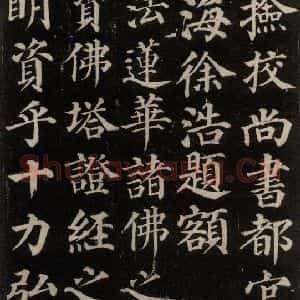 撿挍尚書都官
海徐浩題額
法蓮華諸佛之
資佛塔證經之
明資乎十力弘